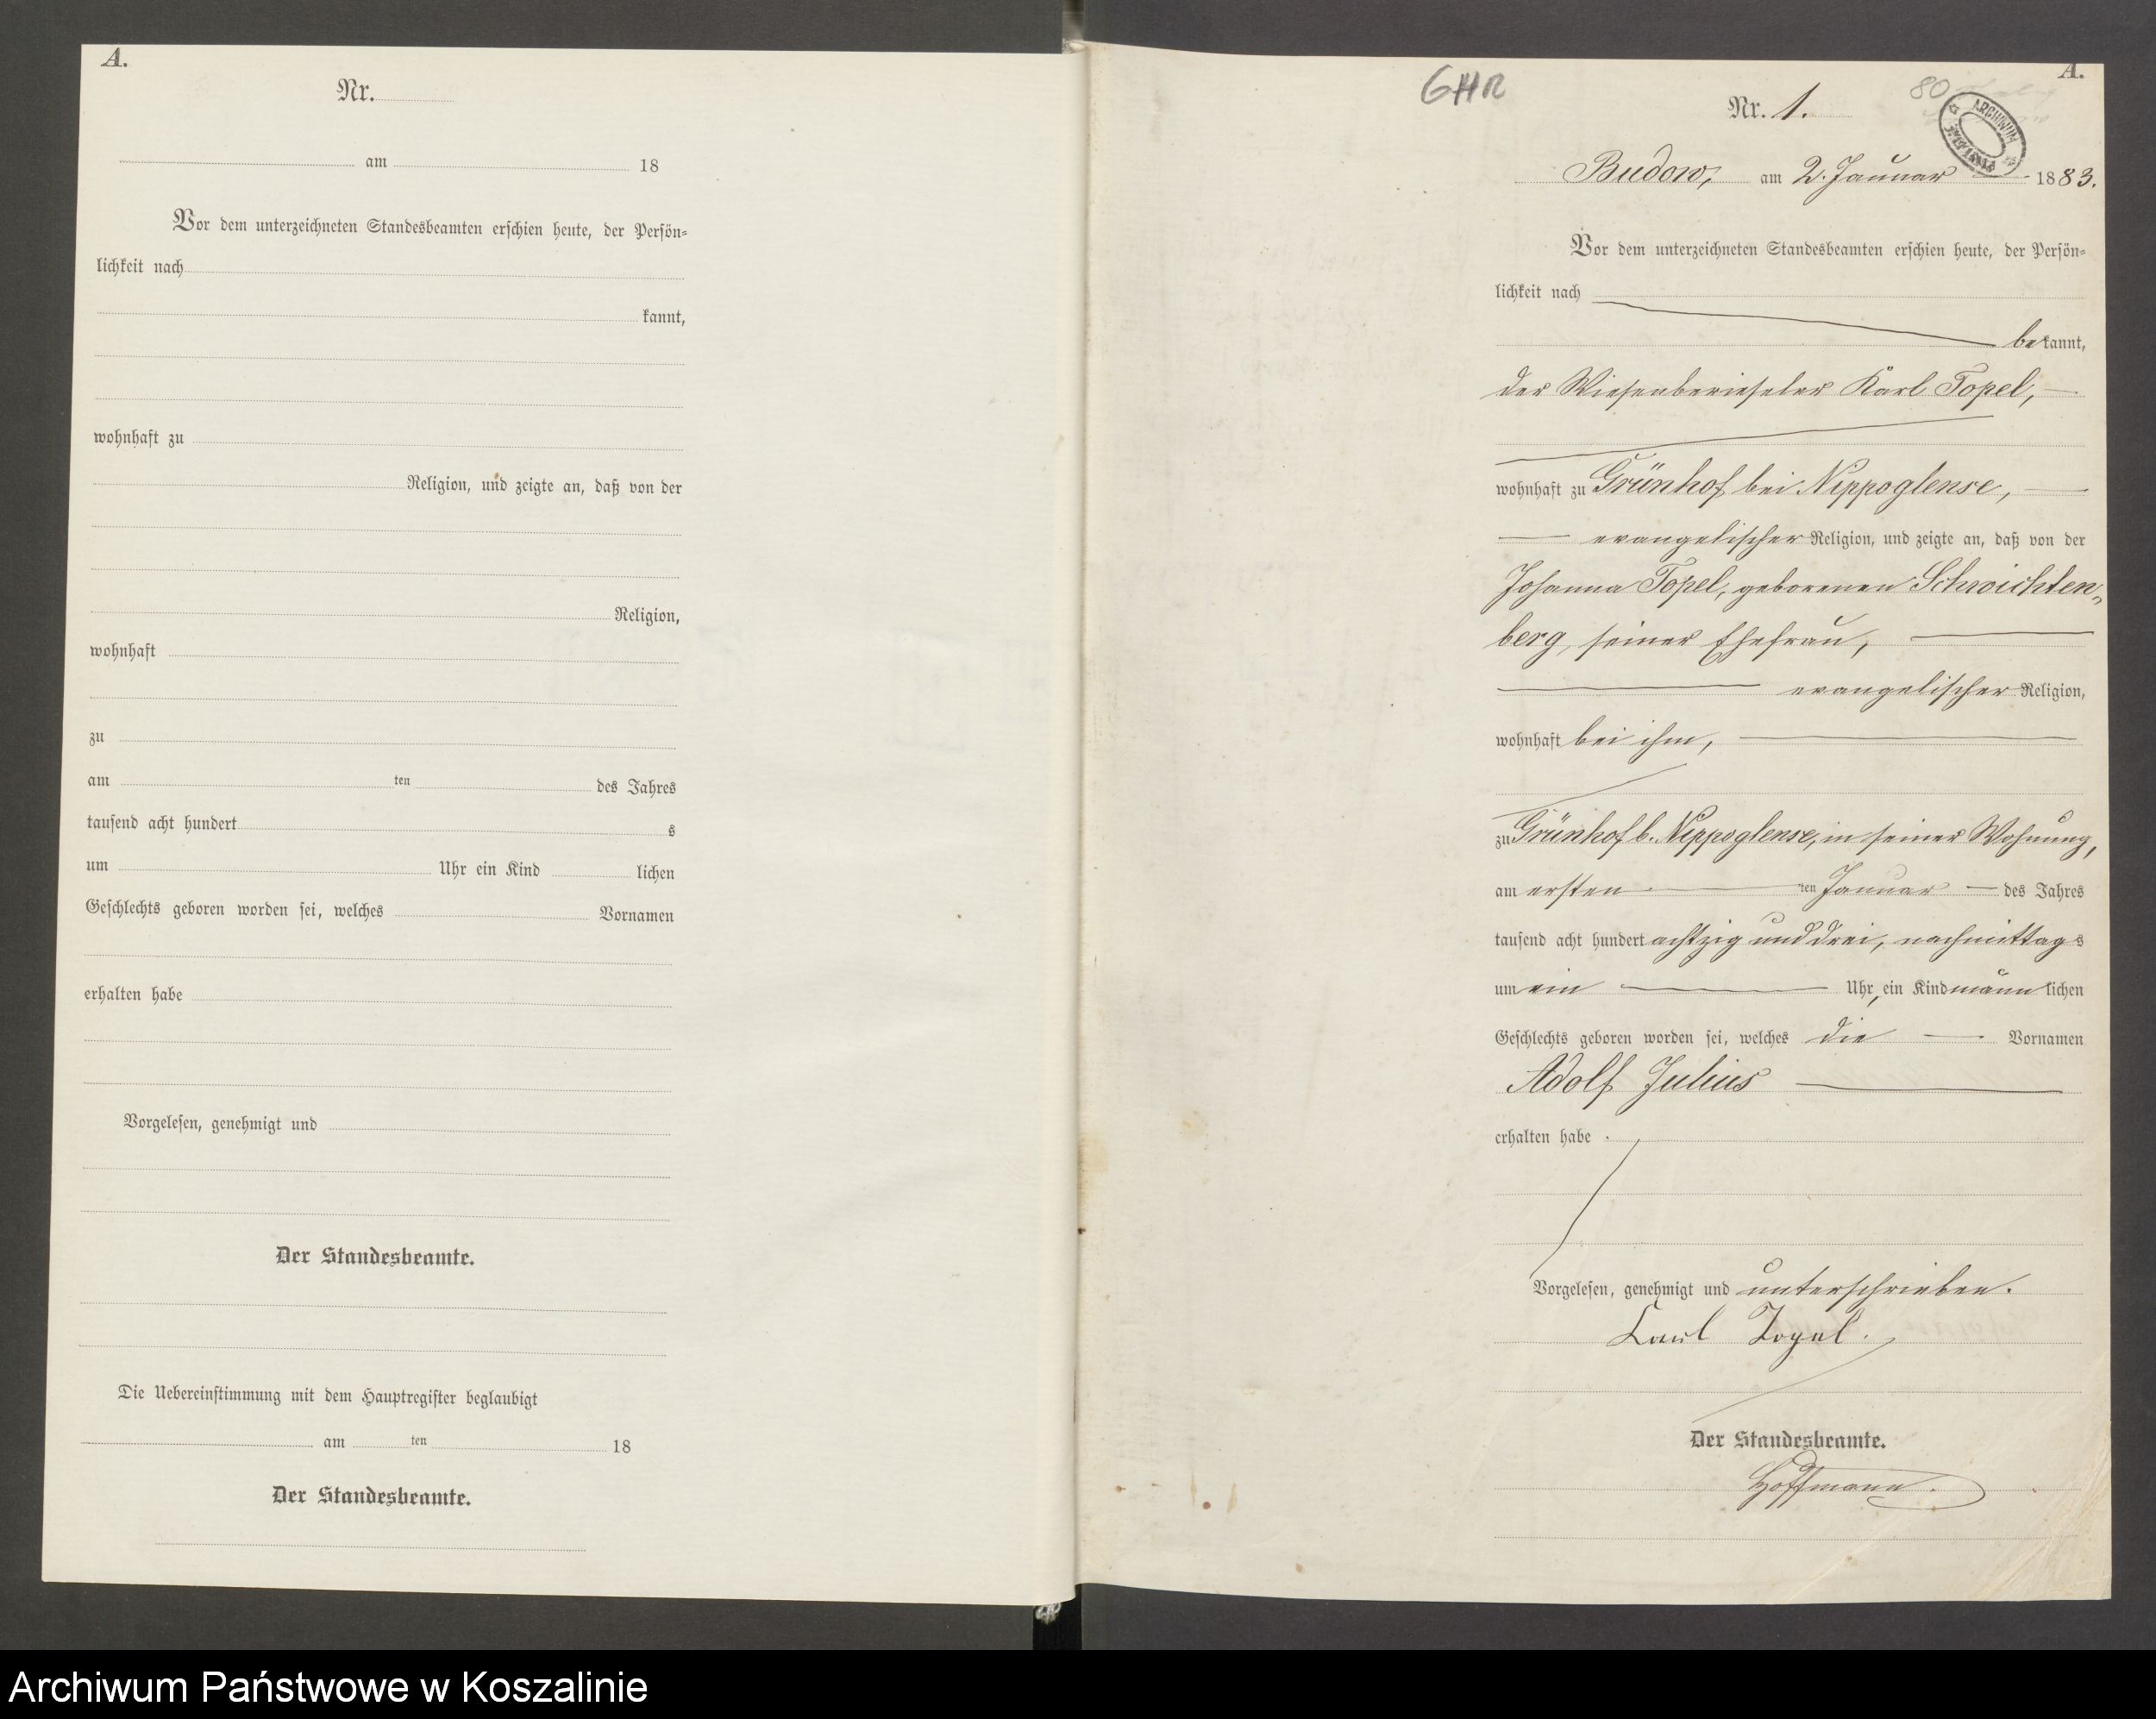 A.
Nr.
am 18
Vor dem unterzeichneten Standesbeamten erschien heute, der Persön-
lichkeit nach
kannt,
wohnhaft zu
Religion, und zeigte an, daß von der
Religion,
wohnhaft
zu
am ten des Jahres
tausend acht hundert s
um Uhr ein Kind lichen
Geschlechts geboren worden sei, welches Vornamen
erhalten habe
Vorgelesen, genehmigt und
Der Standesbeamte.
Die Uebereinstimmung mit dem Hauptregister beglaubigt
am ten 18
Der Standesbeamte.
A.
80
Nr. 1.
ARCHIWUM
Budow, am 2. Januar 1883.
Vor dem unterzeichneten Standesbeamten erschien heute, der Persön-
lichkeit nach
bekannt,
der Wiesenberieseler Karl Topel,
wohnhaft zu Grünhof bei Nippoglense,
evangelischer Religion, und zeigte an, daß von der
Johanna Topel, geborenen Schwichten-
berg, seiner Ehefrau,
evangelischer Religion,
wohnhaft bei ihm,
zu Grünhof b. Nippoglense, in seiner Wohnung,
am ersten ten Januar des Jahres
tausend acht hundert achtzig und drei, nachmittags
um ein Uhr, ein Kind männlichen
Geschlechts geboren worden sei, welches die Vornamen
Adolf Julius
erhalten habe.
Vorgelesen, genehmigt und unterschrieben.
Karl Topel.
Der Standesbeamte.
Hoffmann.
Archiwum Państwowe w Koszalinie